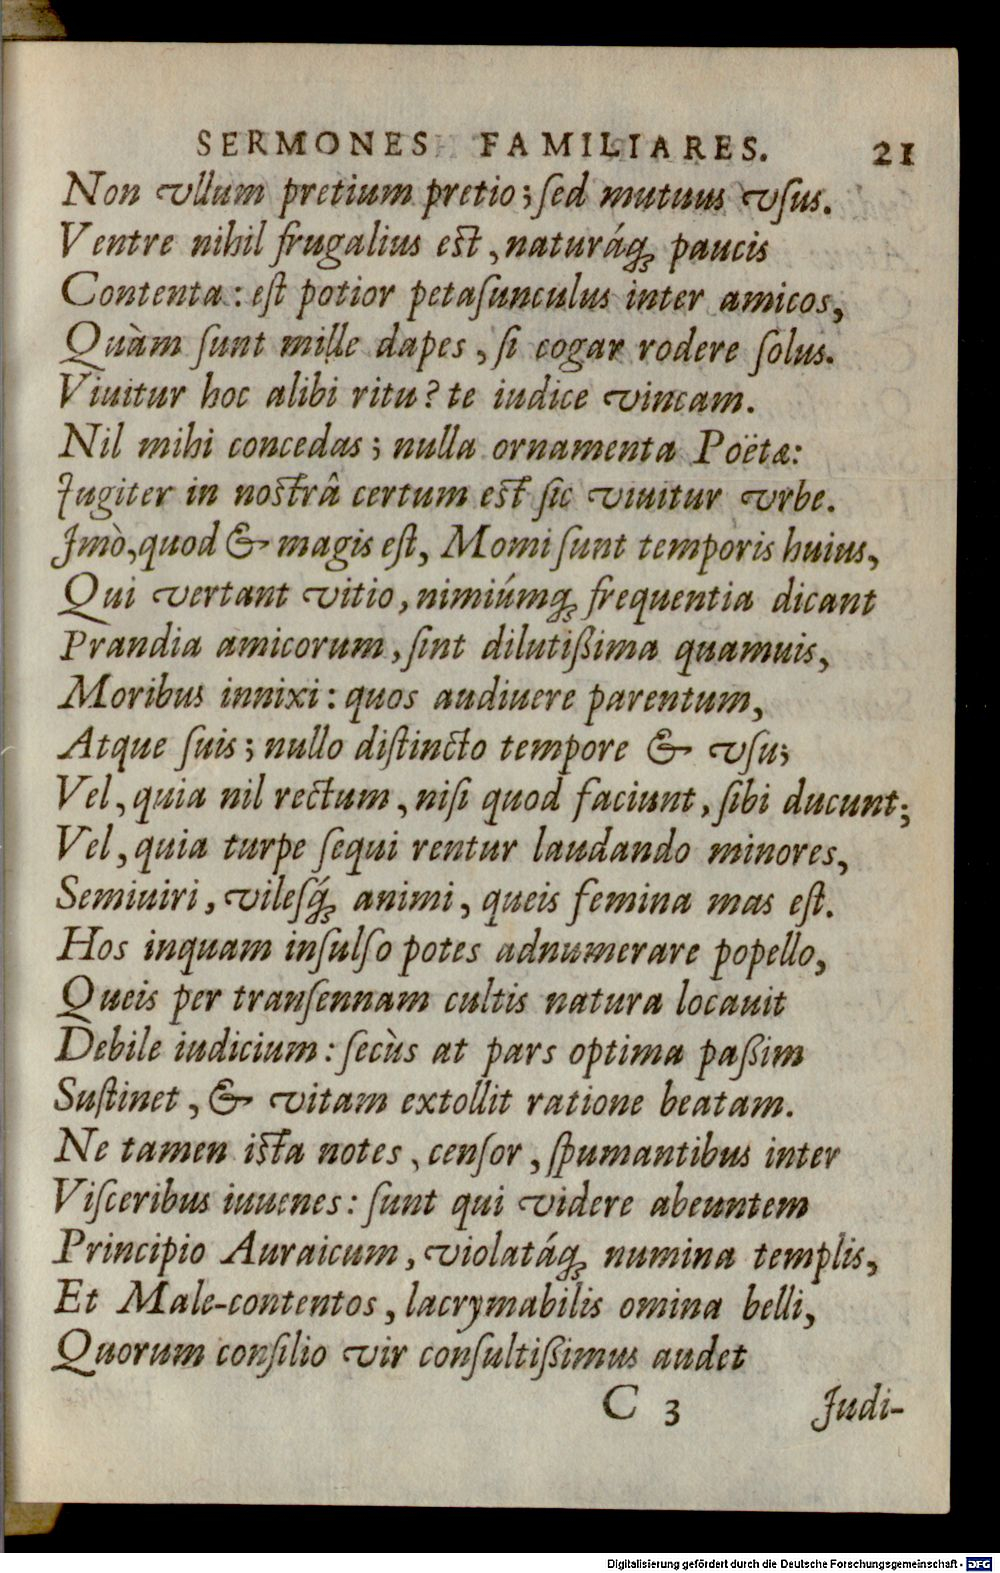 SERMONES FAMILIARES. 21
Non vllum pretium pretio; ſed mutuus vſus.
Ventre nihil frugalius eſt, naturáq́ꝫ paucis
Contenta: eſt potior petaſunculus inter amicos,
Quàm ſunt mille dapes, ſi cogar rodere ſolus.
Viuitur hoc alibi ritu? te iudice vincam.
Nil mihi concedas; nulla ornamenta Poëtæ:
Jugiter in noſtrâ certum eſt ſic viuitur vrbe.
Jmò, quod & magis eſt, Momi ſunt temporis huius,
Qui vertant vitio, nimiúmqꝫ frequentia dicant
Prandia amicorum, ſint dilutißima quamuis,
Moribus innixi: quos audiuere parentum,
Atque ſuis; nullo diſtincto tempore & vſu;
Vel, quia nil rectum, niſi quod faciunt, ſibi ducunt;
Vel, quia turpe ſequi rentur laudando minores,
Semiuiri, vileſq́ꝫ animi, queis femina mas eſt.
Hos inquam inſulſo potes adnumerare popello,
Queis per tranſennam cultis natura locauit
Debile iudicium: ſecùs at pars optima paßim
Suſtinet, & vitam extollit ratione beatam.
Ne tamen iſta notes, cenſor, ſpumantibus inter
Viſceribus iuuenes: ſunt qui videre abeuntem
Principio Auraicum, violatáqꝫ numina templis,
Et Male-contentos, lacrymabilis omina belli,
Quorum conſilio vir conſultißimus audet
C 3 Judi-
Digitalisierung gefördert durch die Deutsche Forschungsgemeinschaft - DFG